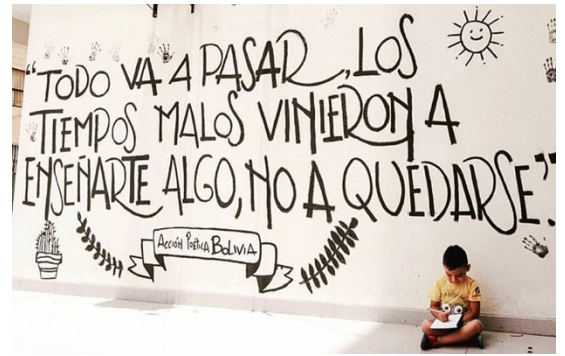 “TODO VA A PASAR, LOS
TIEMPOS MALOS VINIERON A
ENSEÑARTE ALGO, NO A QUEDARSE”.
ACCIÓN POÉTICA BOLIVIA